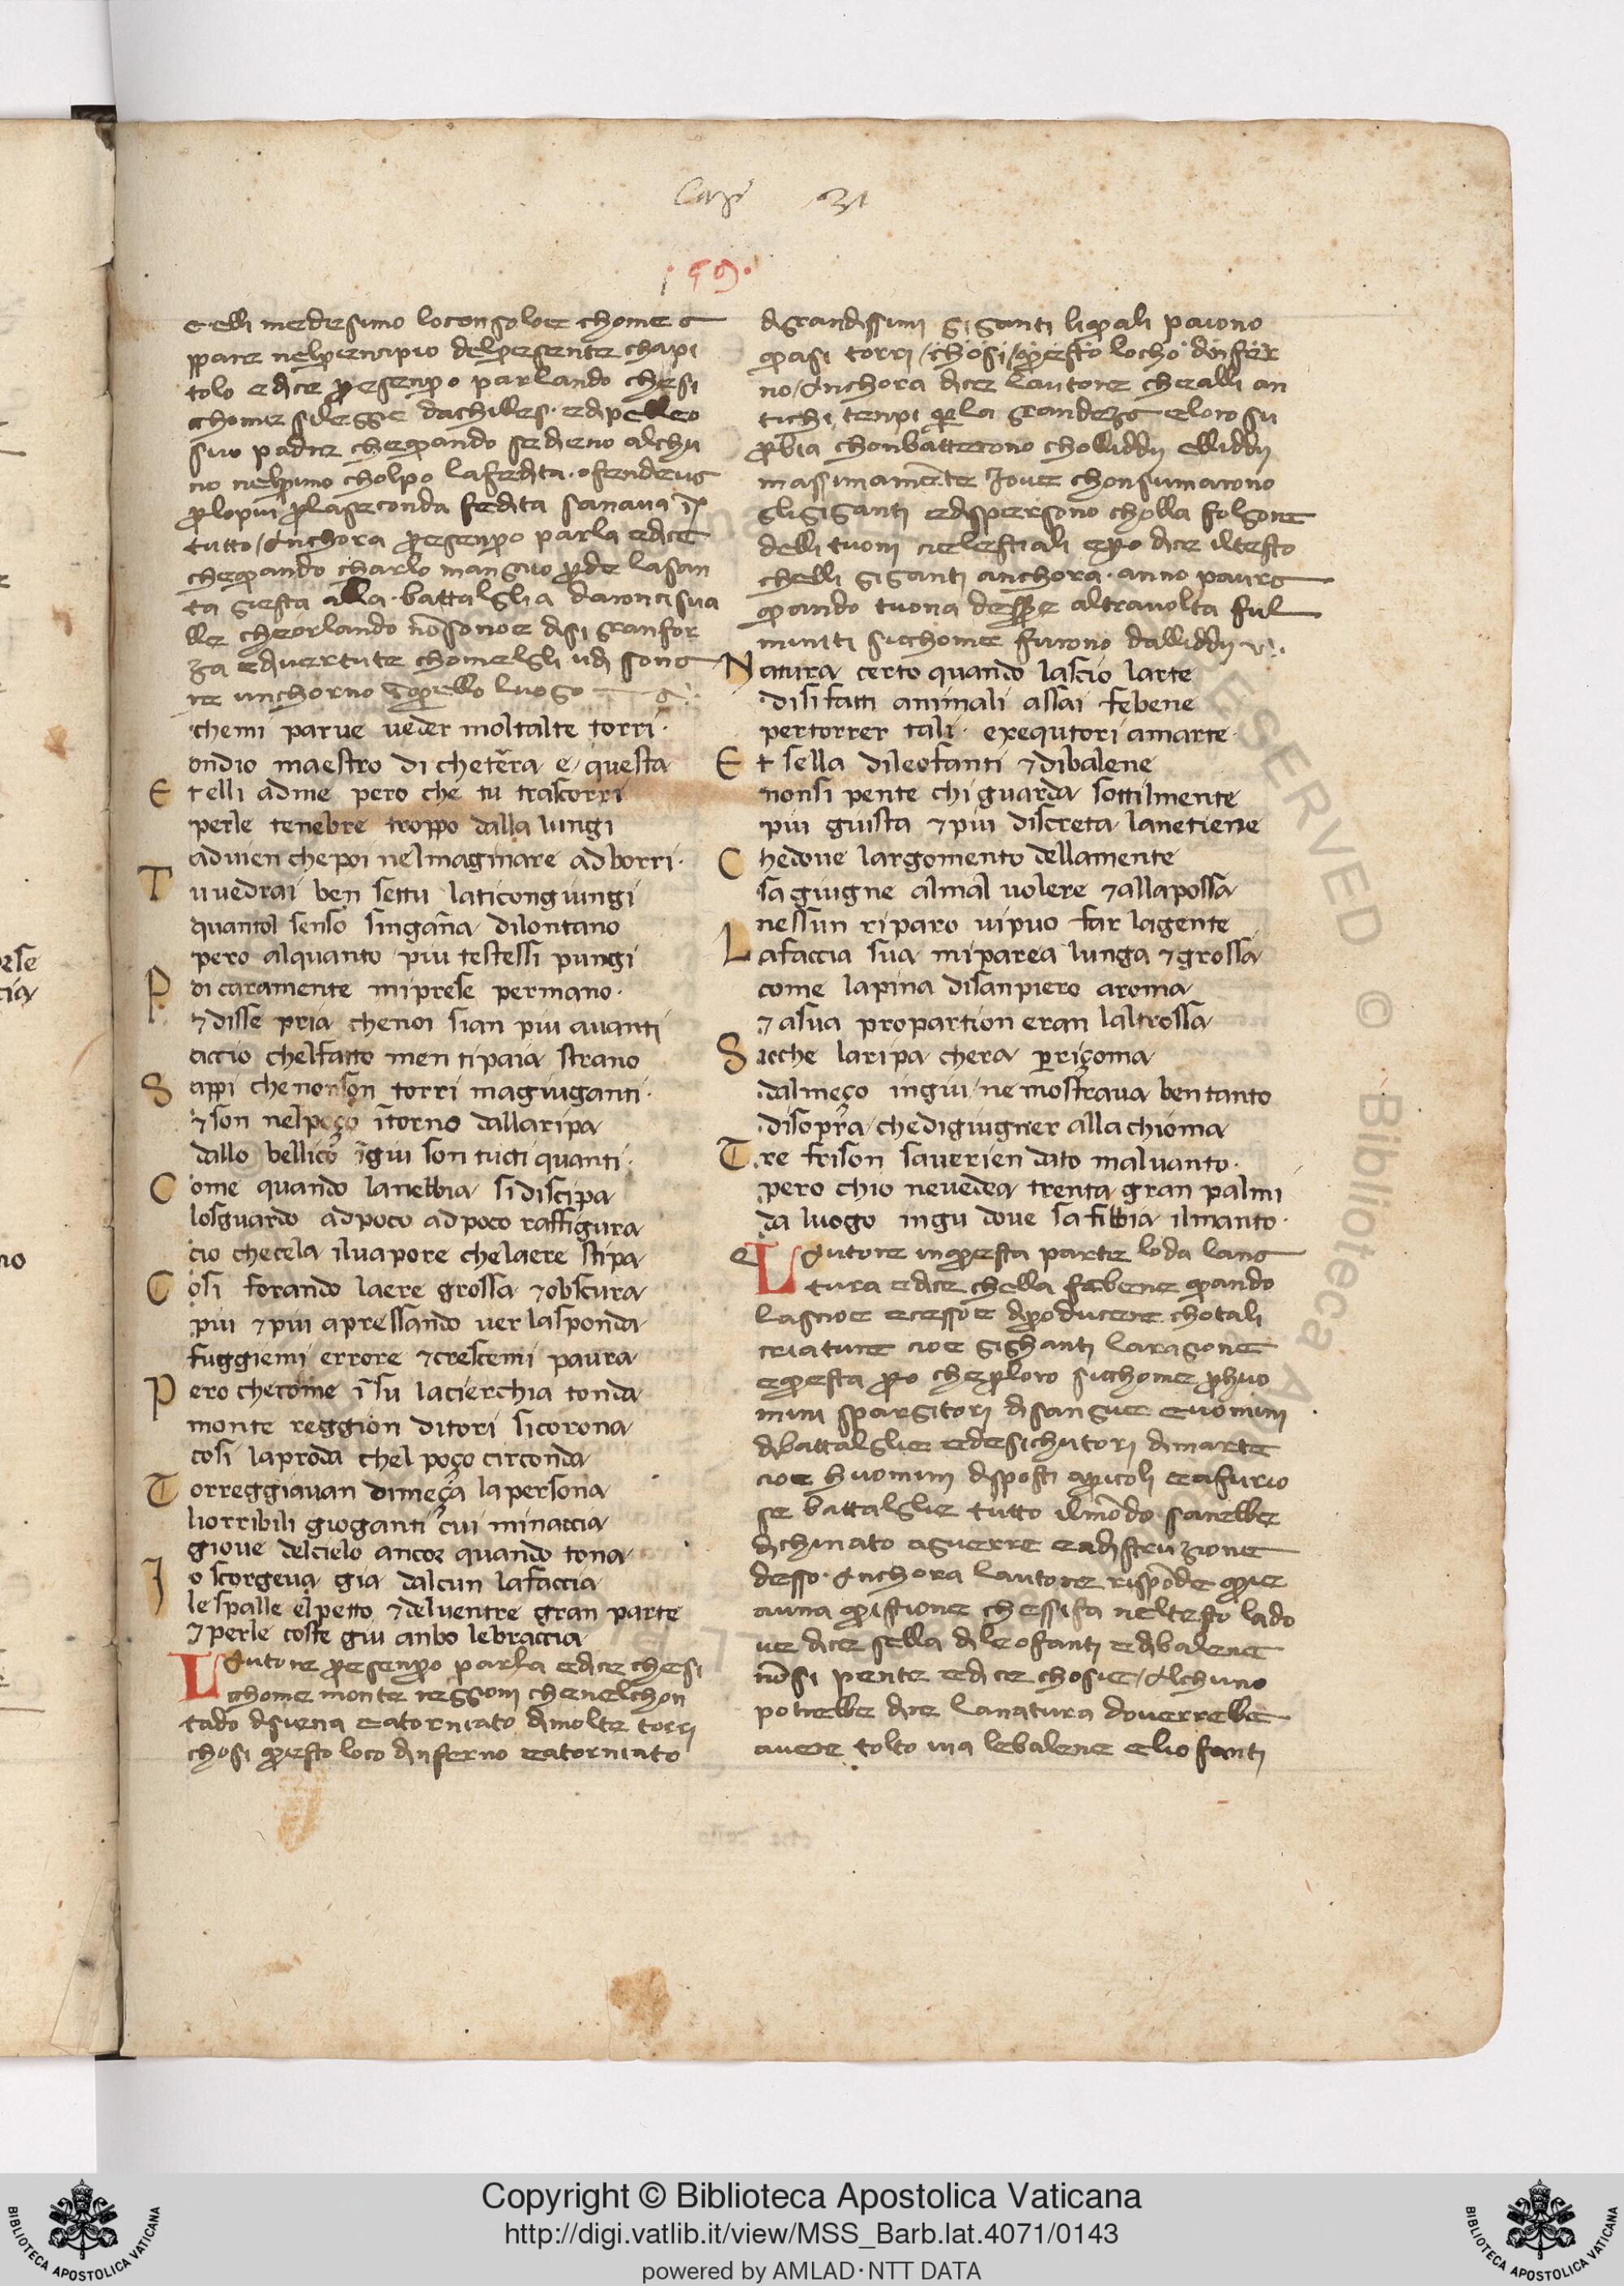 Cap° 31
·59·
e elli medesimo loconsoloe chome a
ppare nelprencipio delpresente chapi
tolo edice p esenpo parlando chesi
chome silegge dachilles · edipelleo
suo padre chequando fedieno alchu
no nelprimo cholpo lafedita · ofendeua
plopiu placeconda fedita sanaua ī
tutto / Anchora p esenpo parla edice
chequando charlo mangnio pde lasan
ta giesta alla · battalglia daroncisua
lle cheorlando nōsonoe disi granfor
za edivertute chomelgli udi sona
re unchorno ī quello luogo
chemi parue ueder moltalte torri ·
ondio maestro di cheterra e / questa
E t elli adme pero che tu trascorri
perle tenebre troppo dalla lungi
aduien chepoi nelmaginare adborri ·
T u uedrai ben settu laticongiungi
quantol senso singāna dilontano
pero alquanto piu testessi pungi
P oi caramente miprese permano ·
⁊ disse pria chenoi sian piu auanti
accio chelfatto men tipaia strano
S appi chenonson torri magiuganti ·
⁊ son nelpoço ītorno dallaripa
dallo bellico īgiu son tucti quanti ·
C ome quando lanebbia sidiscipa
losguardo adpoco adpoco raffigura
cio checela iluapore chelaere stipa
C osi forando laere grossa ⁊ obscura
piu ⁊ piu apressando uer lasponda
fuggiemi errore ⁊ crescemi paura
P ero checome ī su lacierchia tonda
monte reggion ditori sicorona
cosi laproda chel poço circonda
T orreggiauan dimeça lapersona
liorribili gioganti cui minaccia
gioue delcielo ancor quando tona
I o scorgeua gia dalcun lafaccia
lespalle elpetto ⁊ deluentre gran parte
⁊ perle coste giu anbo lebraccia
L Autore p esenpo parla edice chesi
chome monte reggioni chenelchon
tado disiena eatorniato dimolte torri
chosi questo loco dinferno eatorniato
digrandissimi giganti liquali paiono
quasi torri / chosi / questo locho dinfer
no / Anchora dice lautore chealli an
tichi tenpi per la grandeza eloro su
pbia chonbatterono cholliddij elliddij
massimamēte Joue chonsumarono
gligiganti edispersono cholla folgore
delli tuoni cielestiali epo dice iltesto
chelli giganti anchora · anno paura
quando tuona desser altrauolta ful
minati sicchome furono dalliddij
N atura certo quando lascio larte
disi fatti animali assai febene
pertorrer tali · exequtori amarte ·
E t sella dileofanti ⁊ dibalene
nonsi pente chi guarda sottilmente
piu giusta ⁊ piu discreta lanetiene
C hedoue largomento dellamente
sagiugne almal uolere ⁊ allapossa
nessun riparo uipuo far lagente
L afaccia sua miparea lunga ⁊ grossa
come lapina disanpiero aroma
⁊ asua propartion eran laltrossa
S icche laripa chera periçoma
dalmeço ingiu / ne mostraua ben tanto
disopra / chedigiugner alla chioma
T re frison saverien dato maluanto ·
pero chio neuedea trenta gran palmi
da luogo ingu doue saffibbia ilmanto ·
L Autore inquesta parte loda lana
tura edice chella febene quando
lascioe ecessoe diproducere chotali
criature cioe gighanti laragione
equesta po cheploro sicchome phuo
mini spargitori disangue euomini
dibattalglie edesechutori dimarte
cioe huomini disposti apricoli eafurio
se battalglie tutto ilmōdo sarebbe
dichinato aguerre eadistruzione
desso · Anchora lautore rispōde quie
auna quistione chessifa neltesto lado
ue dice sella dileofanti edibalene
nōsi pente edice chosie / Alchuno
potrebbe dire lanatura douerrebbe
auere tolto uia lebalene eliofanti
Copyright © Biblioteca Apostolica Vaticana
http://digi.vatlib.it/view/MSS_Barb.lat.4071/0143
powered by AMLAD·NTT DATA